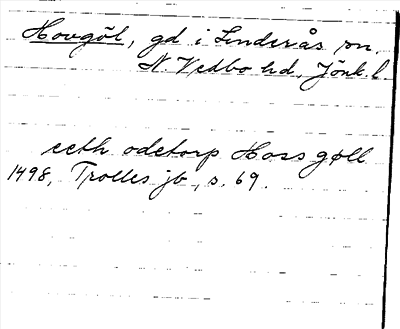 Hovgöl, gd i Linderås sn,
N. Vedbo hd, Jönk. l
eeth ödetorp Hoss gøll
1498, Trolles jb, s. 69.